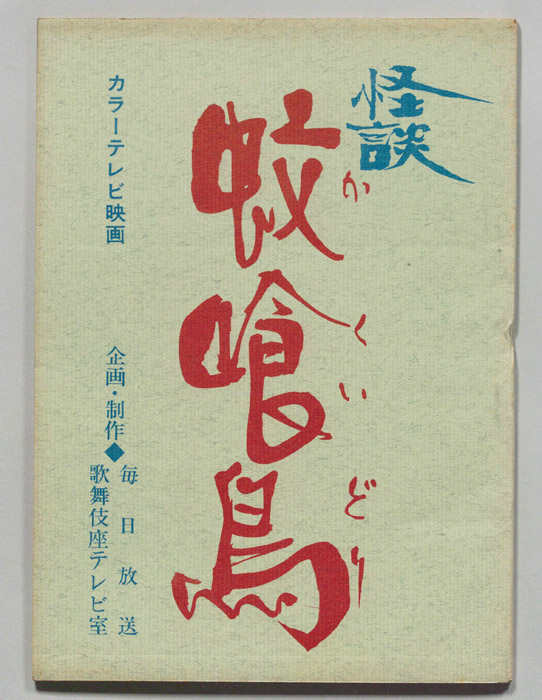 怪談
かくいどり
蚊喰鳥
カラーテレビ映画
企画・制作◆毎日放送
歌舞伎座テレビ室